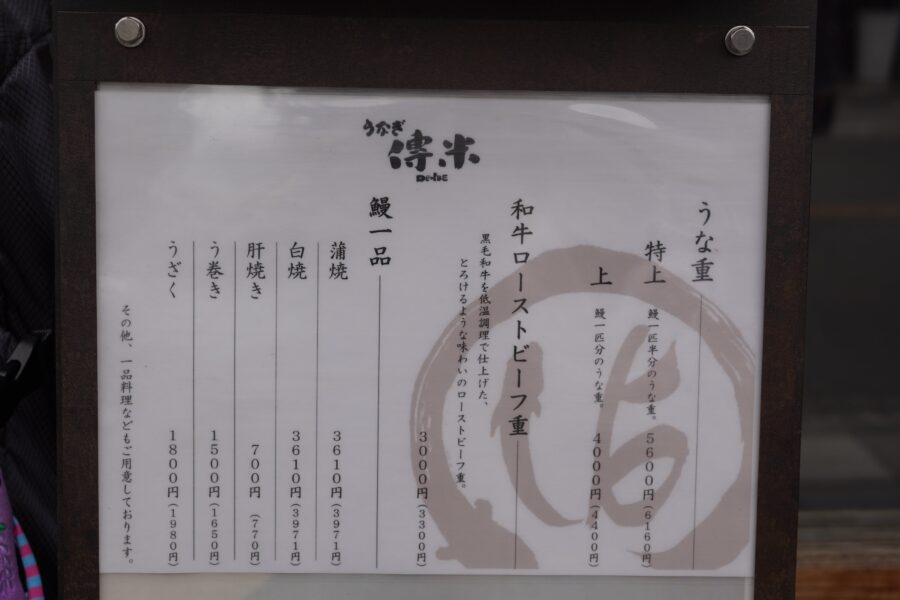 うなぎ
傳米
うな重
特上 鰻一匹半分のうな重。 5600円(6160円)
上 鰻一匹分のうな重。 4000円(4400円)
和牛ローストビーフ重
黒毛和牛を低温調理で仕上げた、
とろけるような味わいのローストビーフ重。
3000円(3300円)
鰻一品
蒲焼 3610円(3971円)
白焼 3610円(3971円)
肝焼き 700円(770円)
う巻き 1500円(1650円)
うざく 1800円(1980円)
その他、一品料理などもご用意しております。